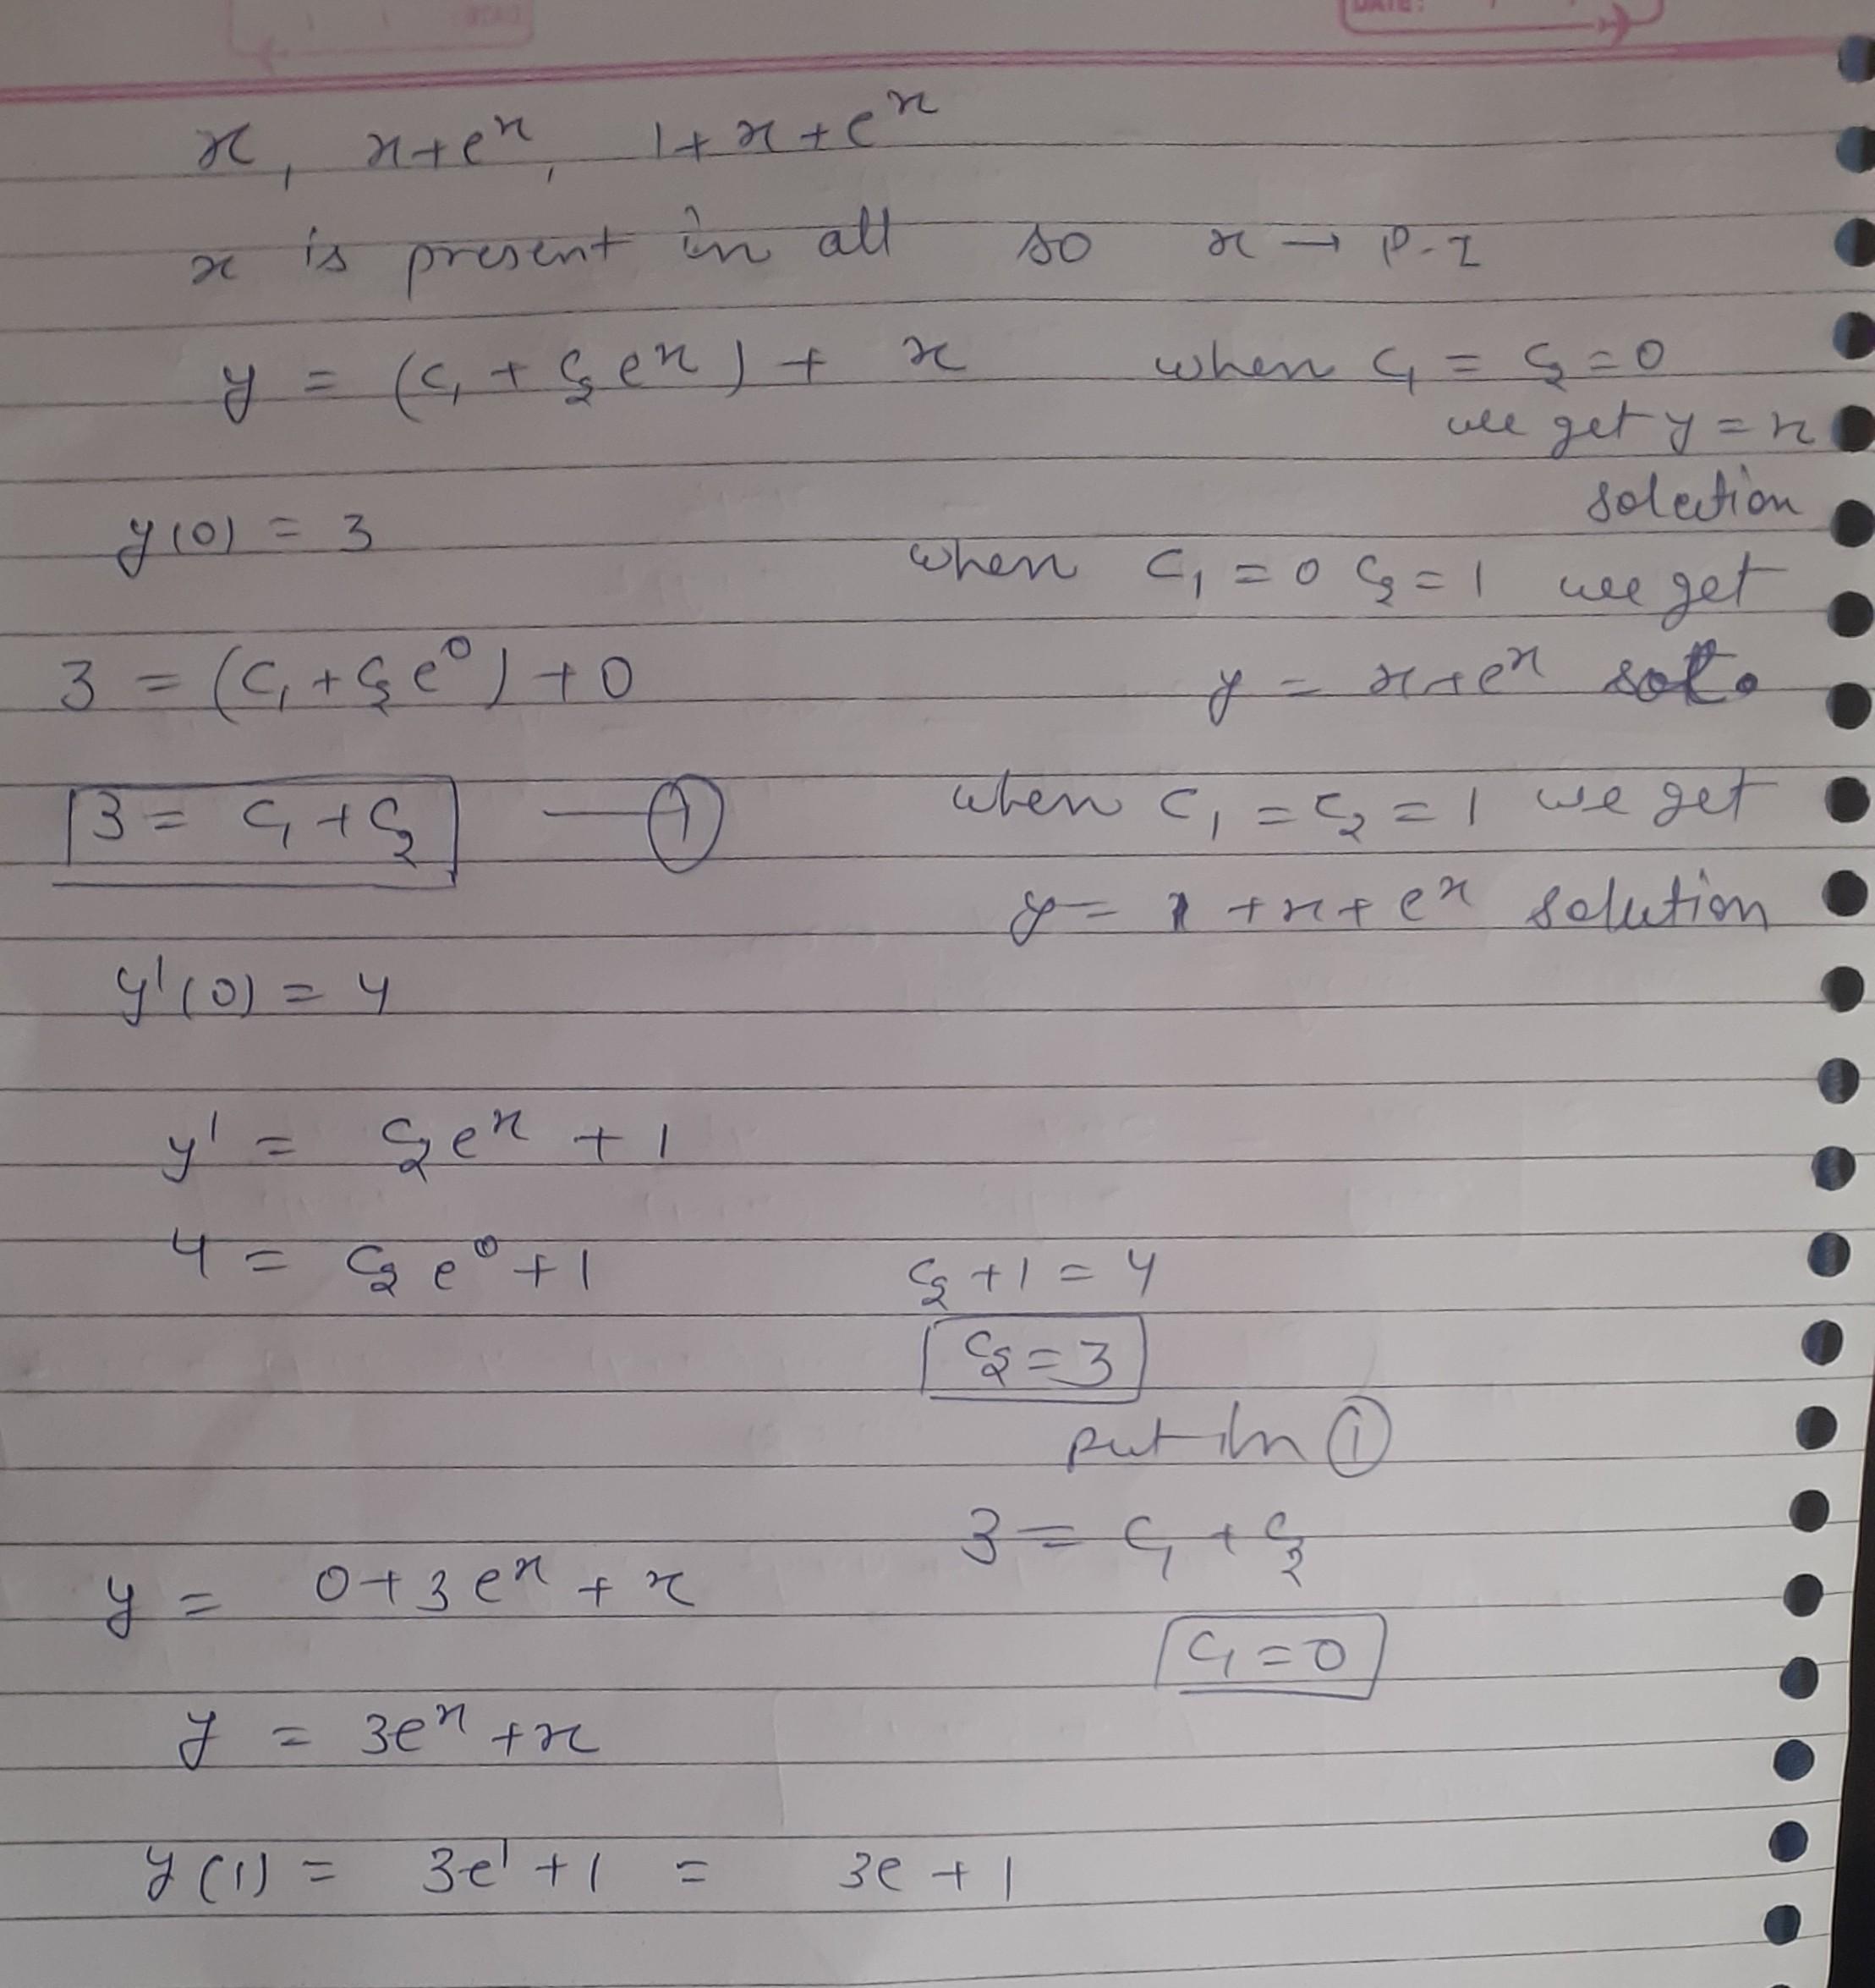 DATE:
x, x+e^x, 1+x+e^x
x is present in all so x → P-I
y = (c₁ + c₂e^x) + x when c₁ = c₂ = 0
we get y = x
solution
y(0) = 3
when c₁ = 0 c₂ = 1 we get
3 = (c₁ + c₂e⁰) + 0
y = x+e^x sol.
3 = c₁ + c₂ — ①
when c₁ = c₂ = 1 we get
y = 1 + x + e^x solution
y'(0) = 4
y' = c₂e^x + 1
4 = c₂e⁰ + 1 c₂ + 1 = 4
c₂ = 3
put in ①
3 = c₁ + c₂
y = 0 + 3e^x + x
c₁ = 0
y = 3e^x + x
y(1) = 3e¹ + 1 = 3e + 1